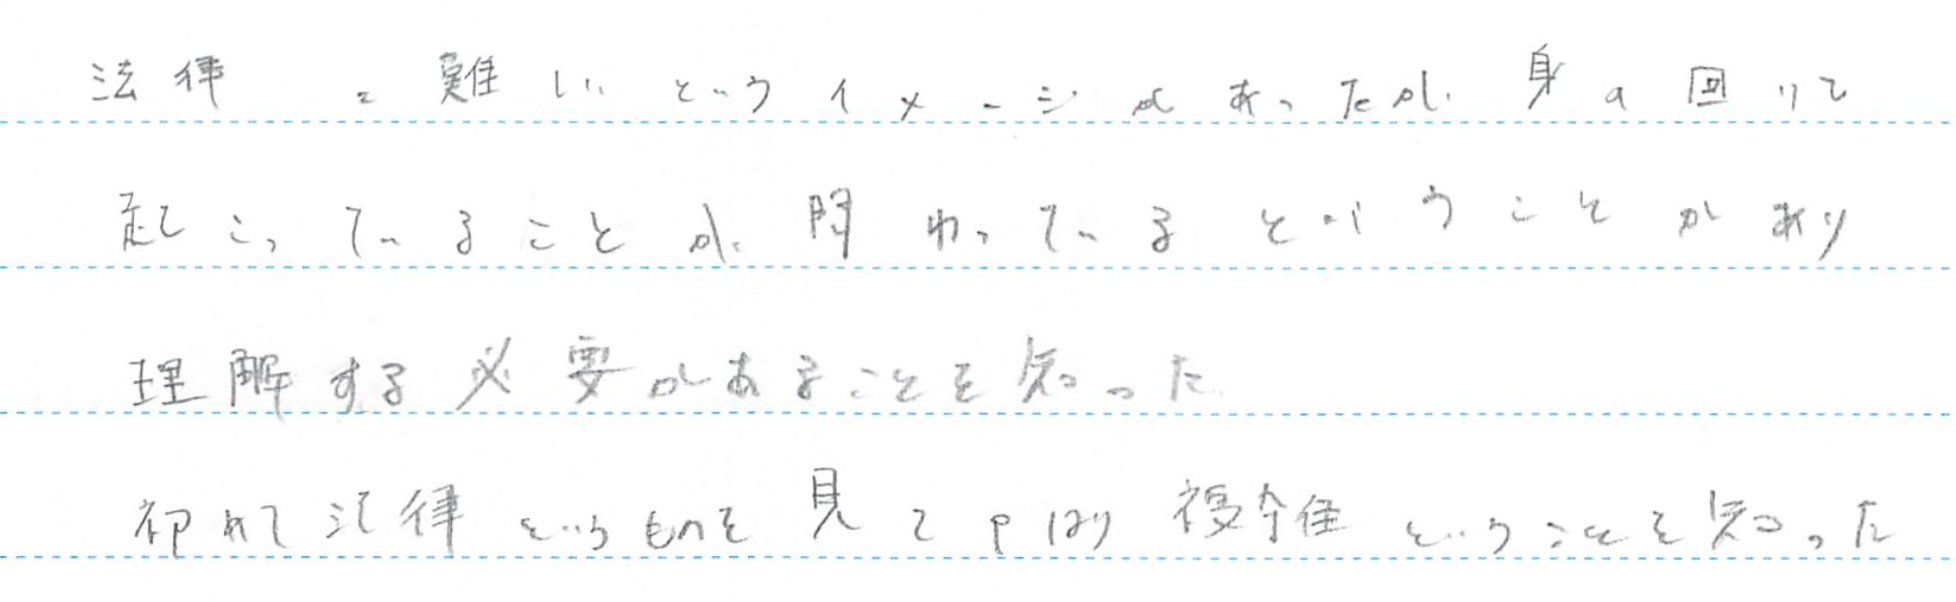 法律 = 難しいというイメージがあったが身の回りで
起こっていることが関わっているということがあり
理解する必要があることを知った
初めて法律というものを見てやはり複雑ということを知った